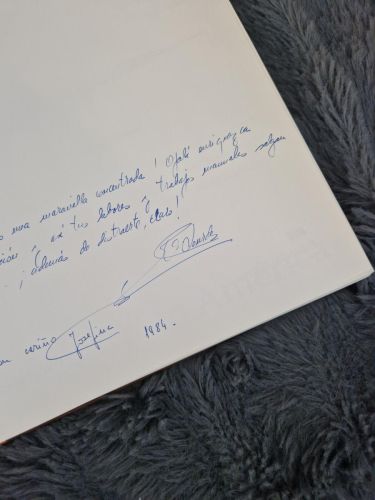 una maravilla concentrada! Ojalá enriquezca
y tus labores y trabajos manuales salgan
¡además de distraerte, claro!
cariño Josefina 1984.